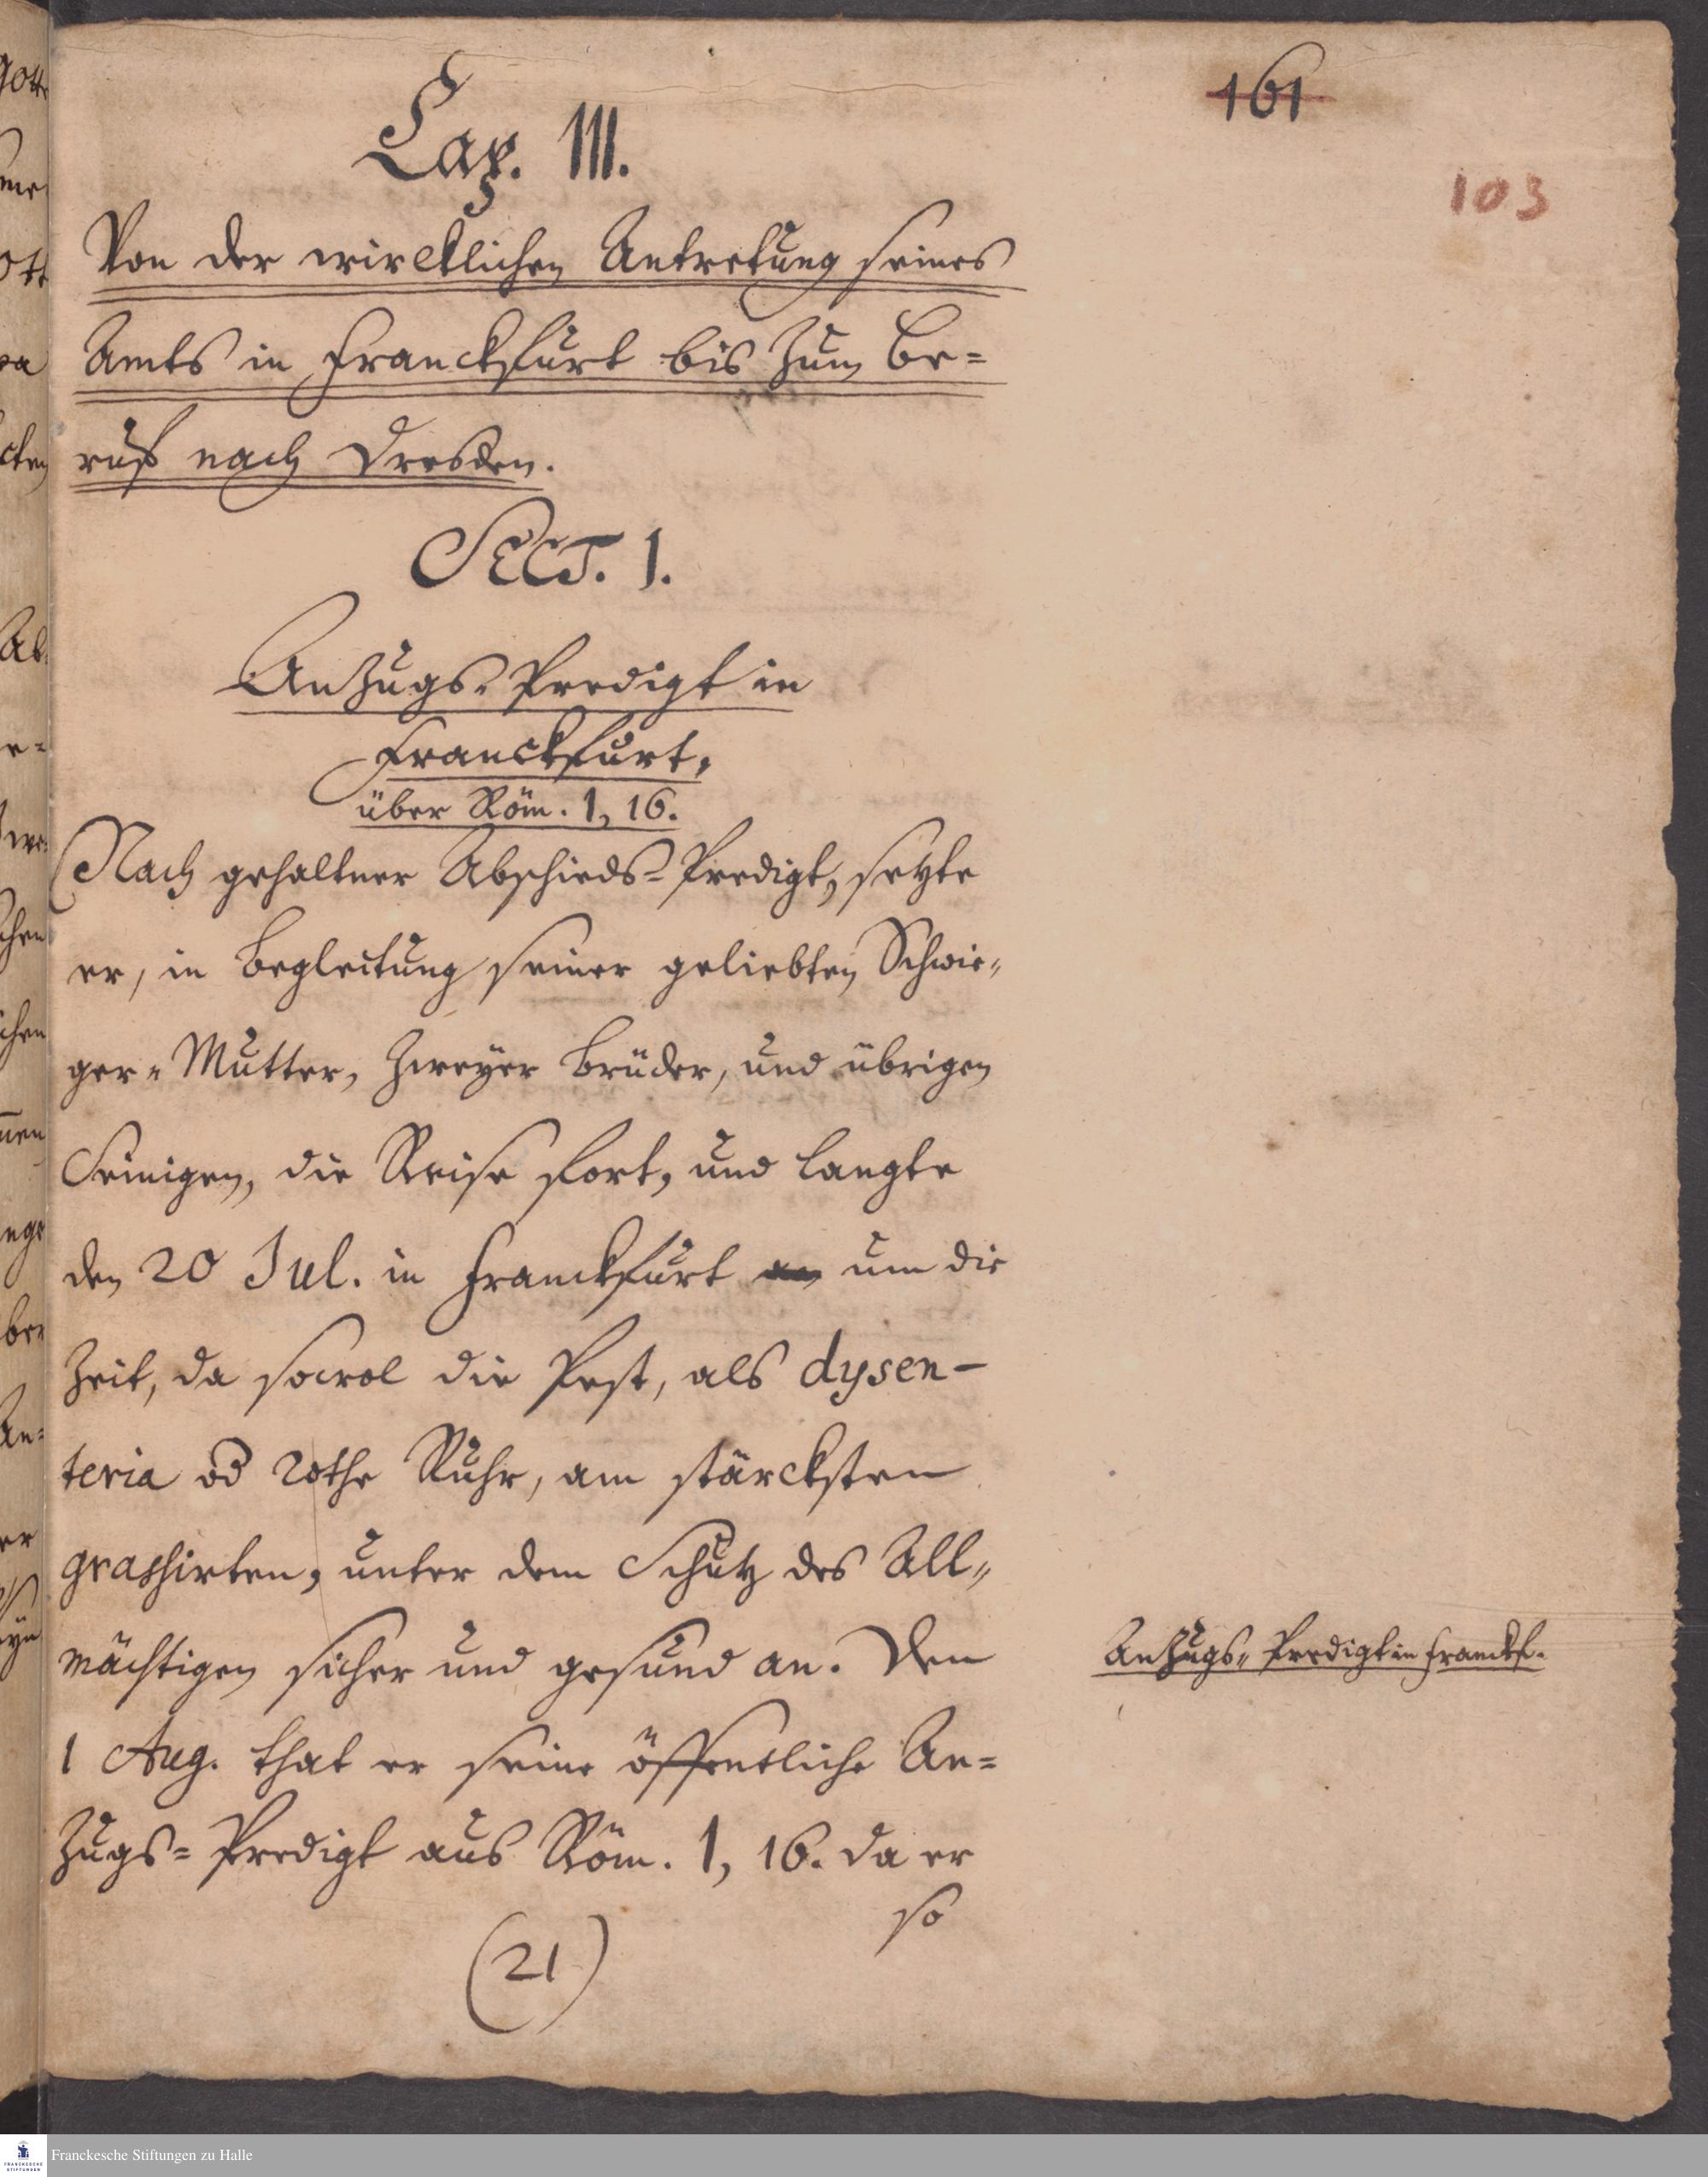 161
103
Cap. III.
Von der wircklichen Antretung seines
Amts in Franckfurt bis zum Be=
ruf nach Dresden.
SECT. 1.
Anzugs-Predigt in
Franckfurt,
über Röm. 1, 16.
Nach gehaltner Abschieds=Predigt, setzte
er, in Begleitung seiner geliebten Schwie=
ger=Mutter, zweyer Brüder, und übrigen
Seinigen, die Reise fort, und langte
den 20 Jul. in Franckfurt an um die
Zeit, da sowol die Pest, als dysen-
teria od rothe Ruhr, am stärcksten
grassirten, unter dem Schutz des All=
mächtigen sicher und gesund an. Den
Anzugs=Predigt in Franckf.
1 Aug. that er seine öffentliche An=
zugs=Predigt aus Röm. 1, 16. da er
so
(21)
Franckesche Stiftungen zu Halle